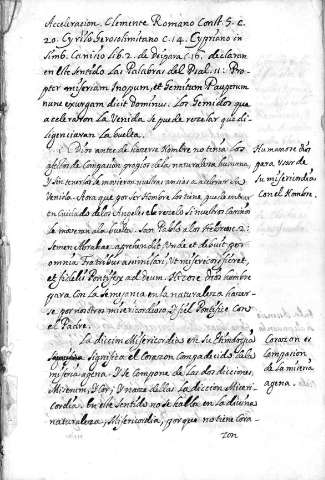 Acceleracion. Clemente Romano Const. 5. C.
20. Cyrillo Hierosolimitano C. 14. Cypriano in
Simb. Lib. 2. C. 15. declaran
en este sentido las Palabras del Psal. 11: Pro-
pter miseriam Inopum, et Gemitum Pauperum
nunc exurgam dicit Dominus. Los Gemidos que
aceleraron la Venida se puede rezelar que di-
ligenciaran la buelta.
Dios antes de hacerse Hombre no tenia los
de Compasion propios de la naturaleza humana,
y sin tenerlos le movieron nuestras ansias a acelerar su
Venida. Aora que por ser Hombre los tiene,
en Cuidado de los Angeles el rezelo si nuestros
le moveran a la buelta. San Pablo a los Hebreos 2:
Semen Abrahae aprehendit, Unde et debuit per
omnia Fratribus assimilari, Ut misericors fieret,
et fidelis Pontifex ad Deum. Hizose Dios hombre
para con la Semejanza en la naturaleza hacer-
se por nosotros misericordioso y fiel Pontifice con
el Padre.
La diccion Misericordia en su
significa el corazon compadecido de la
miseria agena. Y se compone de las dos dicciones
Miserum, y Cor; y nace de las la diccion Miseri-
cordia. En este sentido no se habla en la divina
naturaleza, Misericordia, porque no tiene Cora-
zon
Humanose Dios
para usar de
su misericordia
con el Hombre.
Corazon es
Compasion
de la miseria
agena.